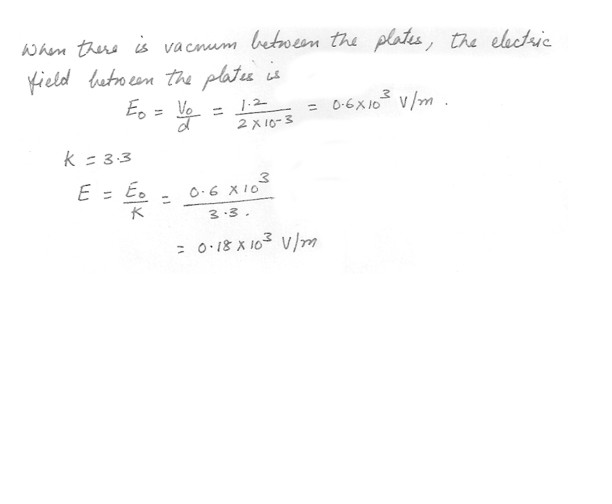 When there is vacuum between the plates, the electric
field between the plates is
E₀ = V₀/d = 1.2/2 × 10-3 = 0.6×10³ V/m .
K = 3.3
E = E₀/K = 0.6 × 10³/3.3 .
= 0.18 × 10³ V/m